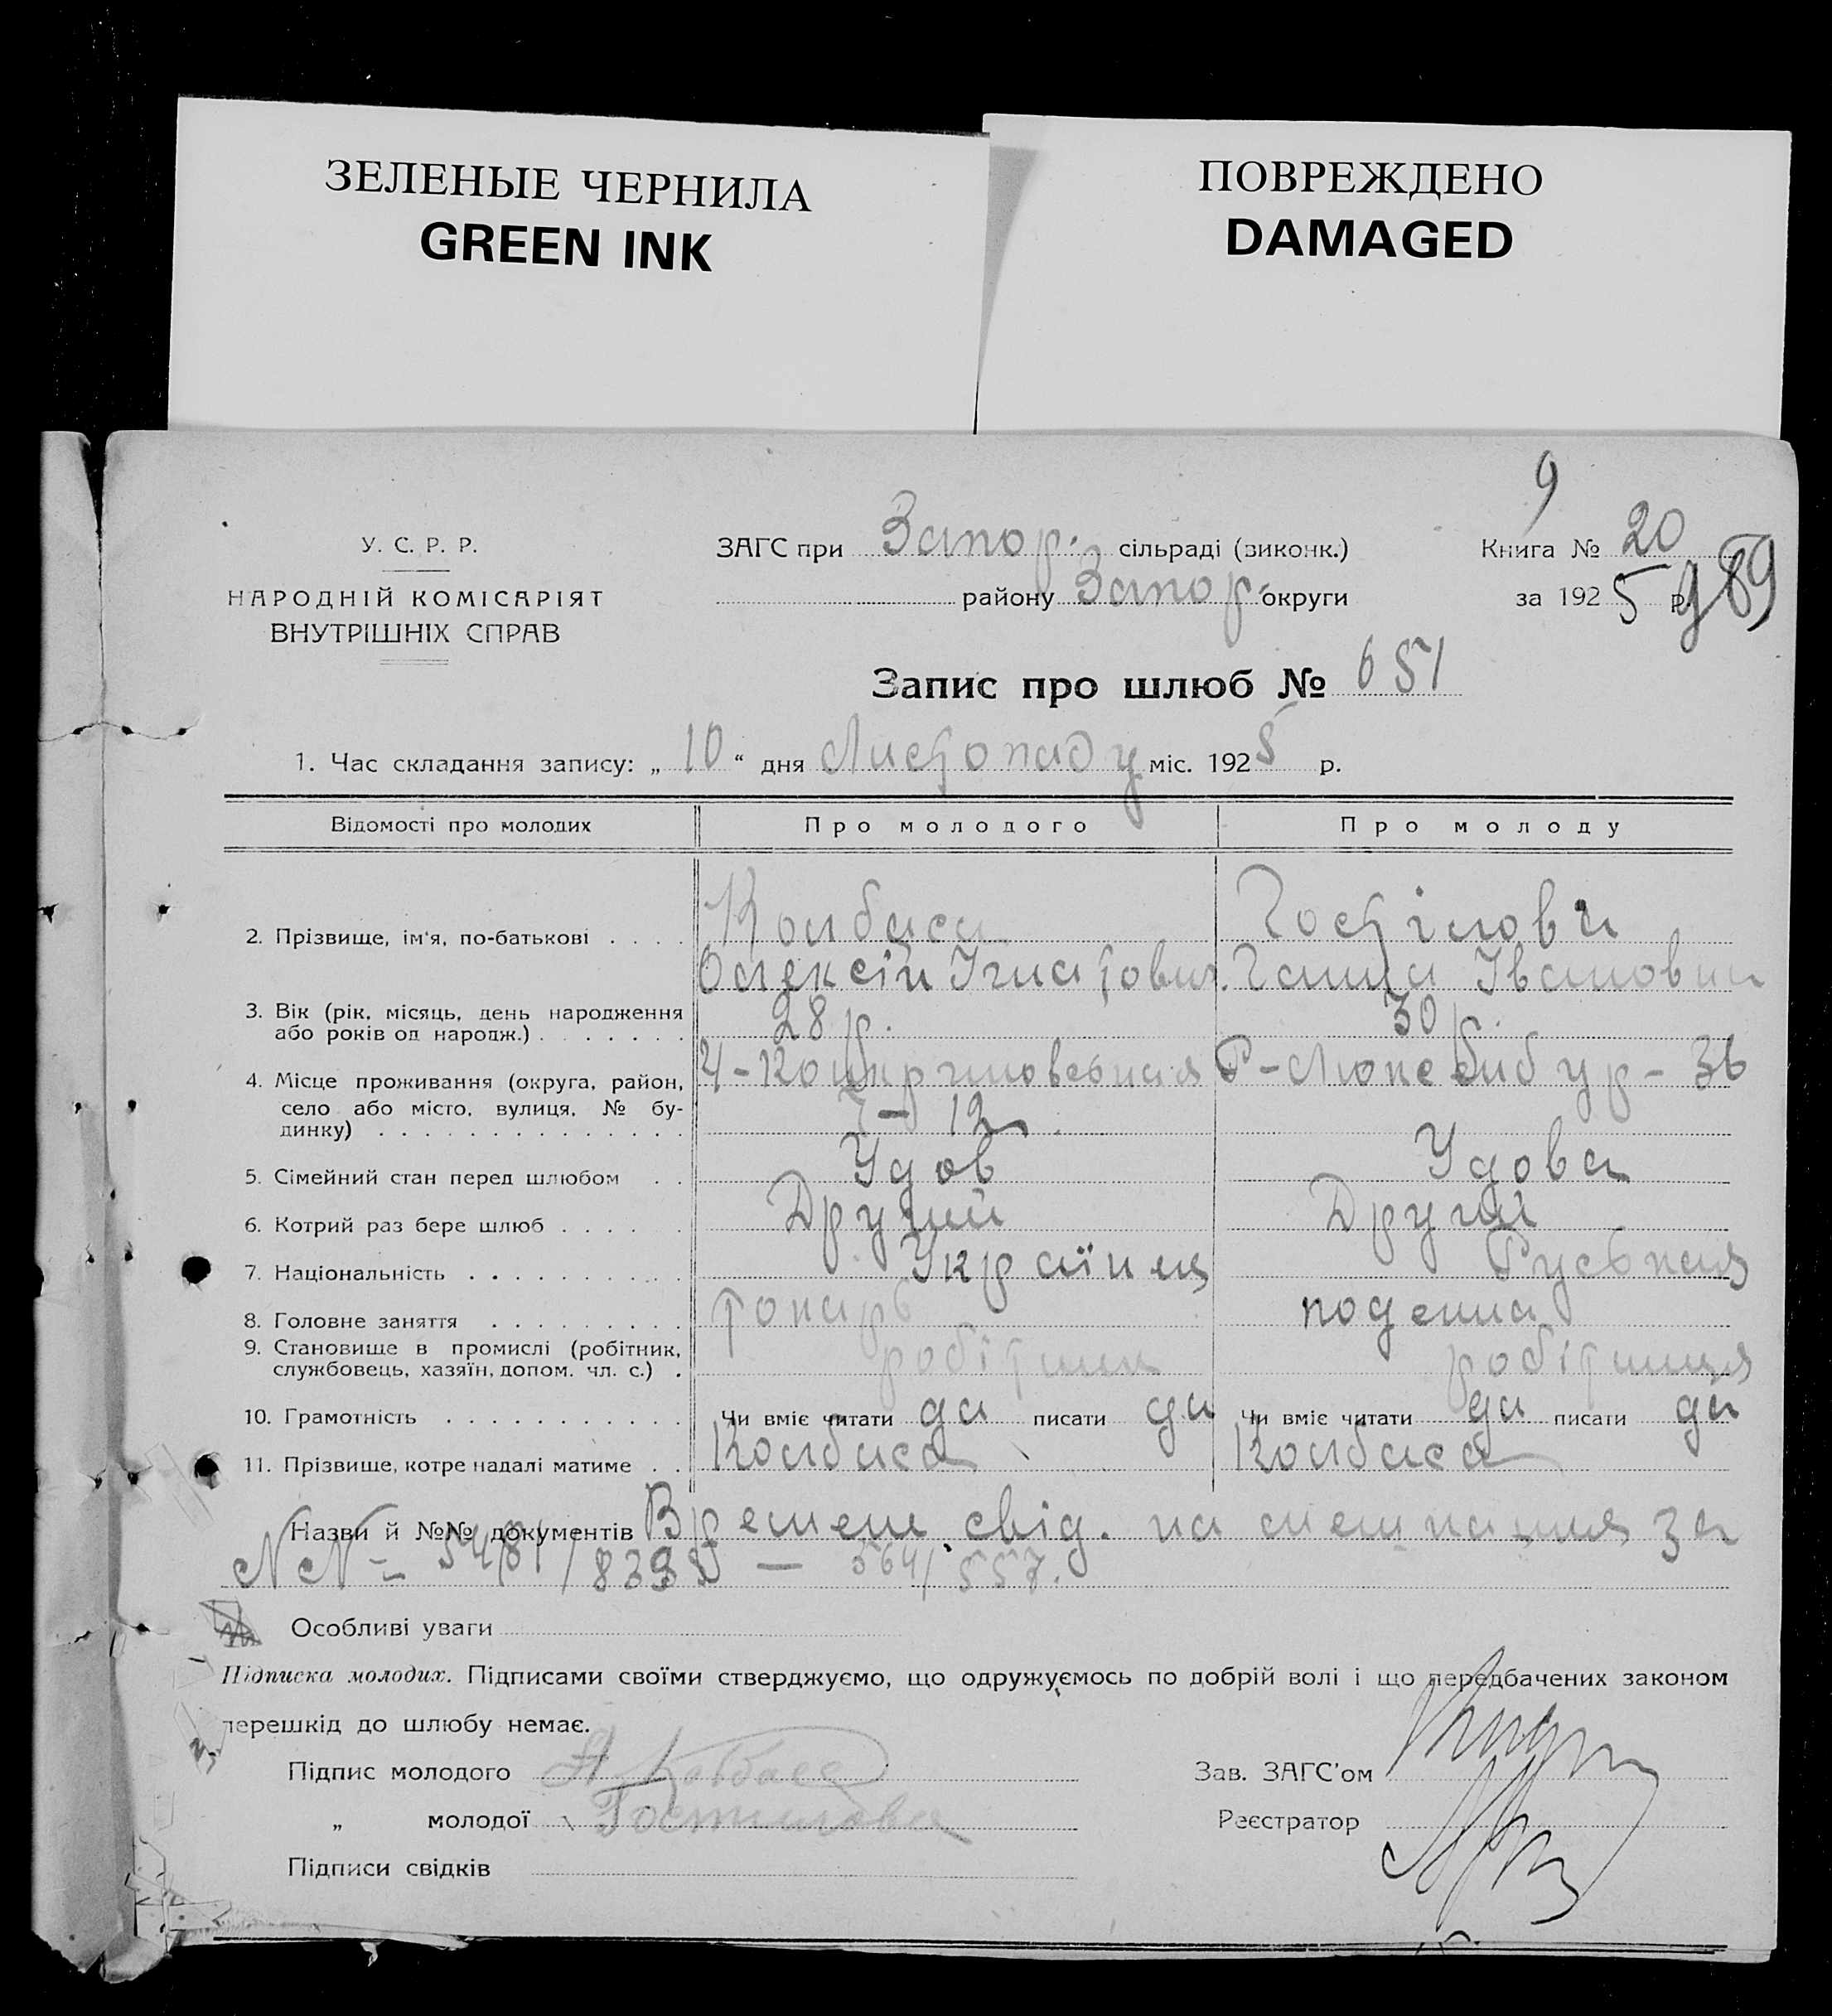 ЗЕЛЕНЫЕ ЧЕРНИЛА
GREEN INK
ПОВРЕЖДЕНО
DAMAGED
9
У. С. Р. Р.
НАРОДНІЙ КОМІСАРІЯТ
ВНУТРІШНІХ СПРАВ
ЗАГС при Запор. сільраді (виконк.)
району Запор. округи
Книга № 20
за 1925 р.
989
Запис про шлюб № 651
1. Час складання запису: „ 10 “ дня Листопаду міс. 1925 р.
Відомості про молодих Про молодого Про молоду
2. Прізвище, ім'я, по-батькові . . . . Колбаса Гостілова
Олексій Ігнатович. Ганна Івановна
3. Вік (рік, місяць, день народження
або років од народж.) . . . . . . . 28 р. 30 р.
4. Місце проживання (округа, район,
село або місто, вулиця, № бу-
динку) . . . . . . . . . . . . . . .
7 – 12 Р-Люксембур - 36
5. Сімейний стан перед шлюбом . . Удов Удова
6. Котрий раз бере шлюб . . . . . Другий Другий
7. Національність . . . . . . . . . . Українец Руськая
8. Головне заняття . . . . . . . . . токарь поденна
9. Становище в промислі (робітник,
службовець, хазяїн, допом. чл. с.) . робітник робітниця
10. Грамотність . . . . . . . . . . . Чи вміє читати да писати да Чи вміє читати да писати да
11. Прізвище, котре надалі матиме . . Колбаса Колбаса
Назви й №№ документів Времен. свід. на мешкання за
NN – 5481/8395 — 564/557.
Особливі уваги
Підписка молодих. Підписами своїми стверджуємо, що одружуємось по добрій волі і що передбачених законом
перешкід до шлюбу немає.
Підпис молодого А Колбаса
Зав. ЗАГС'ом
„ молодої Гостилова
Реєстратор
Підписи свідків